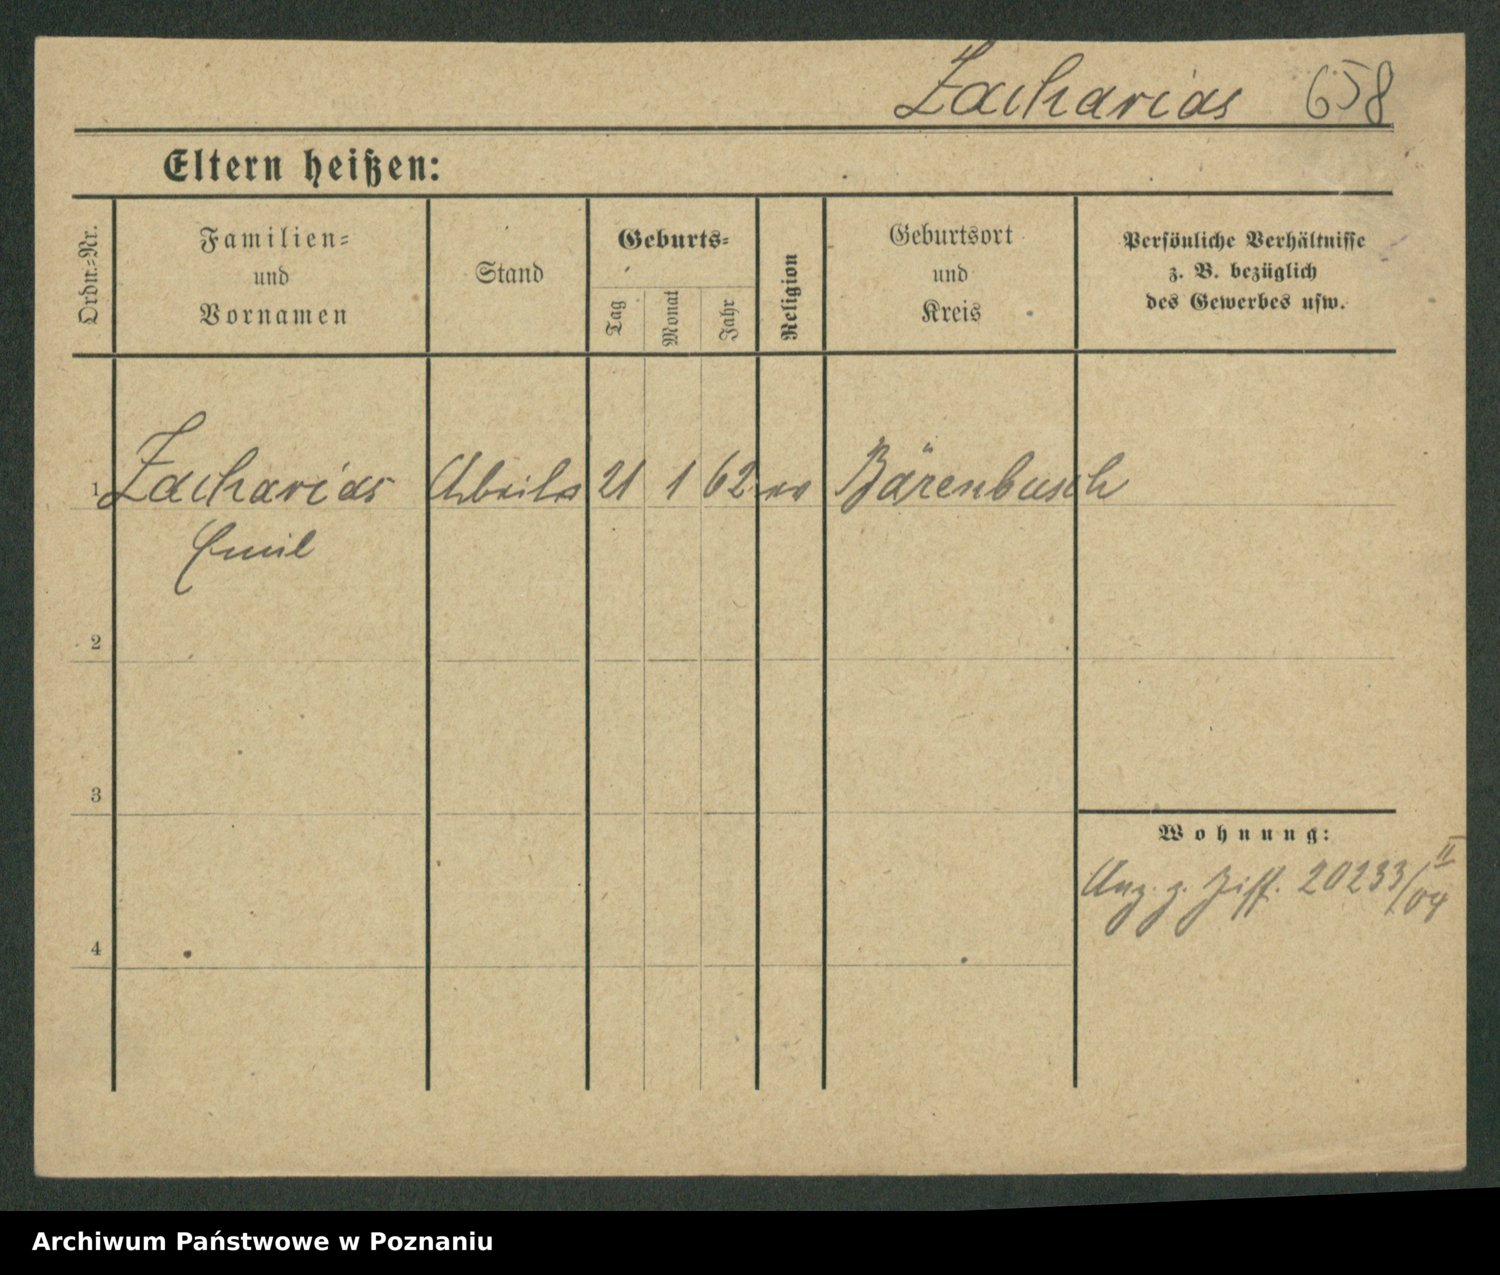 Zacharias 658
Eltern heißen:
Ordn.=Nr.
Familien=
und
Vornamen
Stand
Geburts=
Tag
Monat
Jahr
Religion
Geburtsort
und
Kreis
Persönliche Verhältnisse
z. B. bezüglich
des Gewerbes usw.
1 Zacharias Arbeiter 21 1 62 ev Bärenbusch
Emil
2
3
4
Wohnung:
Anz. z. Ziff. 20233/II 04
Archiwum Państwowe w Poznaniu